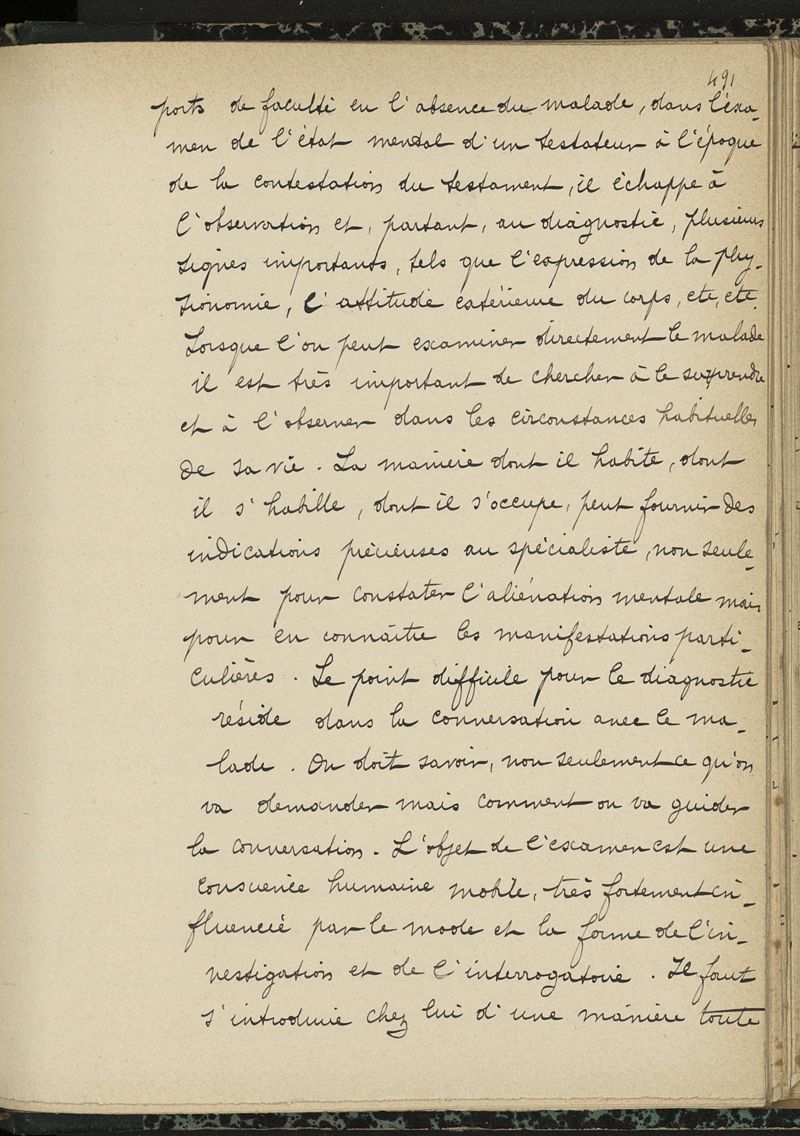 491
ports de faculté en l'absence du malade, dans l'exa-
men de l'état mental d'un testateur à l'époque
de la contestation du testament, il échappe à
l'observation et, partant, au diagnostic, plusieurs
signes importants, tels que l'expression de la phy-
sionomie, l'attitude extérieure du corps, etc, etc.
Lorsque l'on peut examiner directement le malade
il est très important de chercher à le surprendre
et à l'observer dans les circonstances habituelles
de sa vie. La manière dont il habite, dont
il s'habille, dont il s'occupe, peut fournir des
indications précieuses au spécialiste, non seule-
ment pour constater l'aliénation mentale mais
pour en connaître les manifestations parti-
culières. Le point difficile pour le diagnostic
réside dans la conversation avec le ma-
lade. On doit savoir, non seulement ce qu'on
va demander mais comment on va guider
la conversation. L'objet de l'examen est une
conscience humaine mobile, très fortement in-
fluencée par le mode et la forme de l'in-
vestigation et de l'interrogatoire. Il faut
s'introduire chez lui d'une manière toute